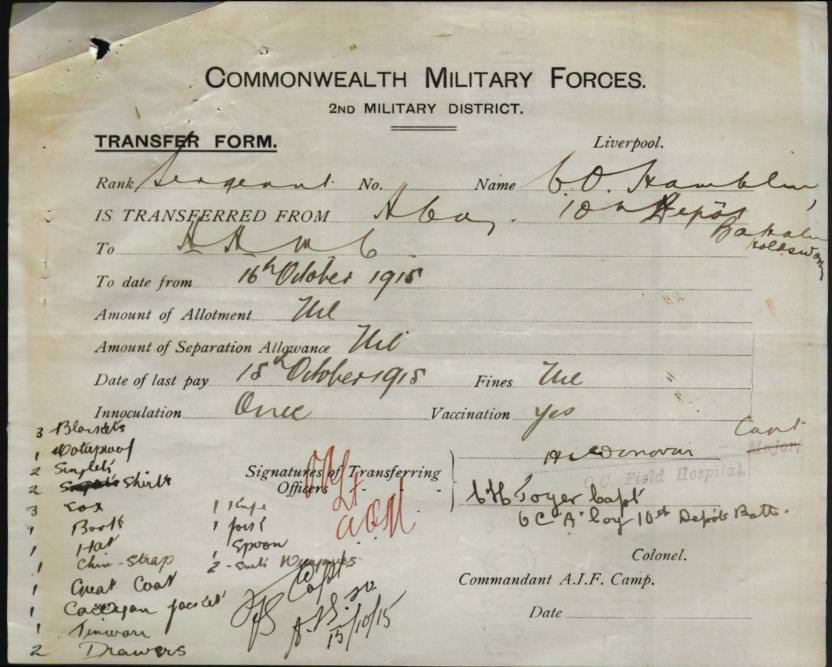 COMMONWEALTH MILITARY FORCES.
2ND MILITARY DISTRICT.
TRANSFER FORM. Liverpool.
Rank Sergeant No. Name C.O. Hamblin,
IS TRANSFERRED FROM A Coy. 10th Depôt
To A A M C
To date from 16th October 1915
Amount of Allotment Nil
Amount of Separation Allowance Nil
Date of last pay 15th October 1915 Fines Nil
Innoculation Once Vaccination Yes
3 Blankets
1 Waterproof
2 Singlets
2 Shirts
3 Sox
1 Boots
1 Hat
1 Chin-strap
1 Great Coat
1 Cardigan jacket
1 Tinware
2 Drawers
1 Knife
1 fork
1 Spoon
2 - Suits
Signatures of Transferring
Officers - -
Capt
Major,
O.C. Field Hospital
Capt
O C "A" Coy 10th Depôt Batt.
Capt
15/10/15
Colonel.
Commandant A.I.F. Camp.
Date